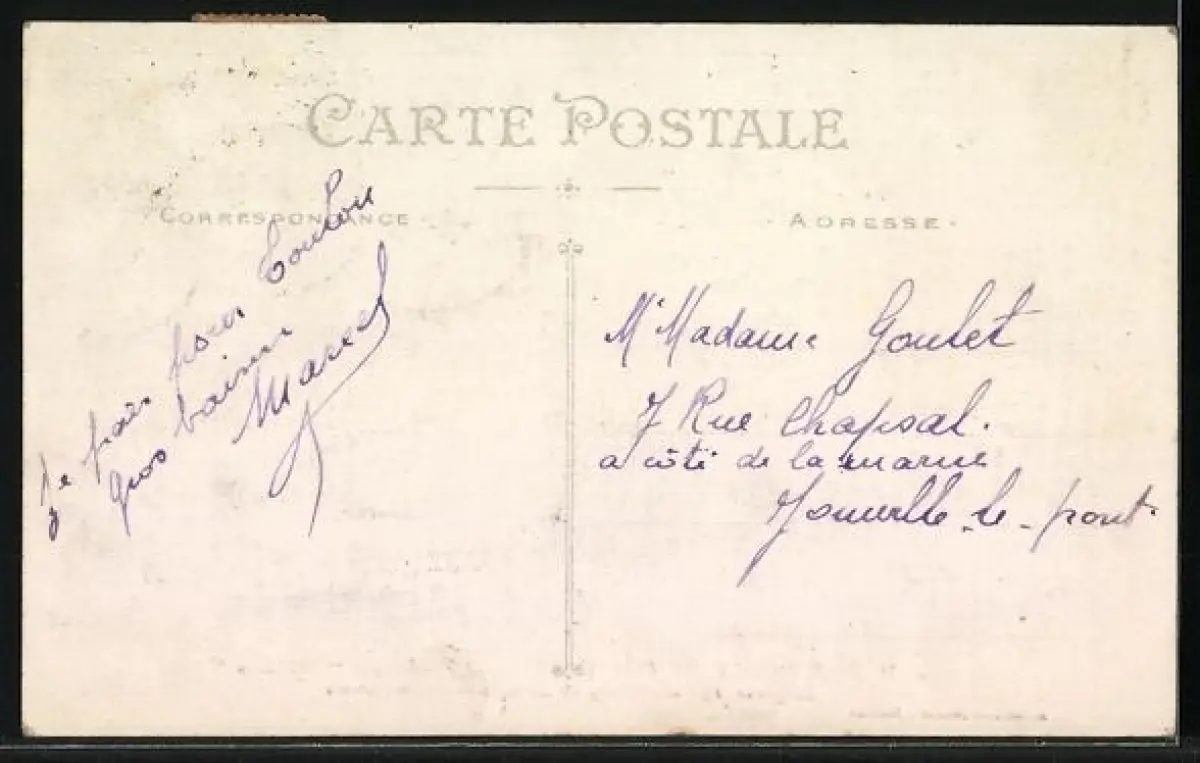 CARTE POSTALE
CORRESPONDANCE
ADRESSE
Je pars pour Toulon
gros baiser
Marcel
Mr Madame Goulet
7 Rue Chapsal.
a côté de la marne
Joinville-le-pont.